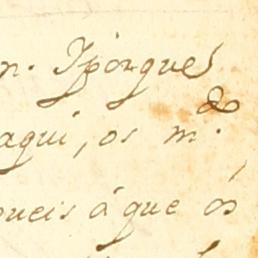 m. Iporque
aqui, os m.do
oueis á que ós